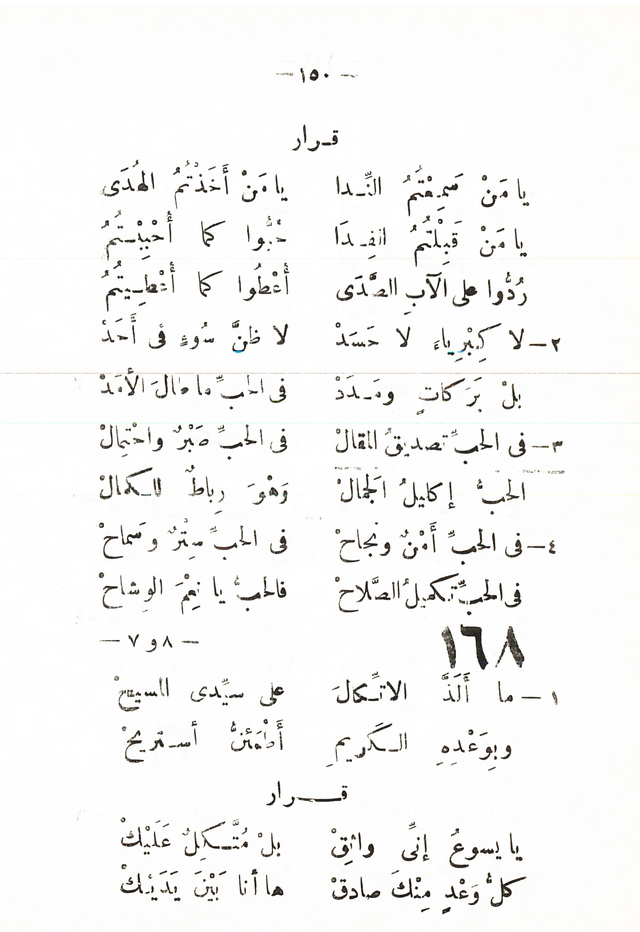 — ١٥٠ —
قـرار
يا مَنْ سَمِعْتُمُ النِّـدا يا مَنْ أَخَذْتُمُ الهُدَى
يا مَنْ قَبِلْتُمُ الفِـدَا حُبُّوا كما أُحْبِبْـتُمُ
رُدُّوا على الآبِ الصَّدَى أَعْطُوا كما أُعْطِـيتُمُ
٢ – لا كِبْرِياءَ لا حَسَدْ لا ظنَّ سُوءٍ فى أَحَدْ
بلْ بَرَكاتٍ ومَـدَدْ فى الحبِّ ما طالَ الأَمَدْ
٣ – فى الحبِّ تصديقُ المقالْ فى الحبِّ صَبْرٌ واحْتِمالْ
الحبُّ إكليلُ الجمالْ وَهْوَ رِباطٌ للكمالْ
٤ – فى الحبِّ أَمْنٌ ونجاحْ فى الحبِّ سِتْرٌ وسَماحْ
فى الحبِّ تكميلُ الصَّلاحْ فالحبُّ يا نِعْمَ الوِشاحْ
١٦٨ — ٨ و ٧ —
١ – ما أَلَذَّ الاتِّـكالَ على سيِّدى المسيحْ
وبِوَعْدِهِ الـكَريمِ أَطْمَئنُّ أسـتريحْ
قـــرار
يا يسوعُ إنِّى واثِقْ بلْ مُتَّـكِلٌ عَلَيْكْ
كلُّ وَعْدٍ مِنْكَ صادقْ ها أنا بَيْنَ يَدَيْـكْ